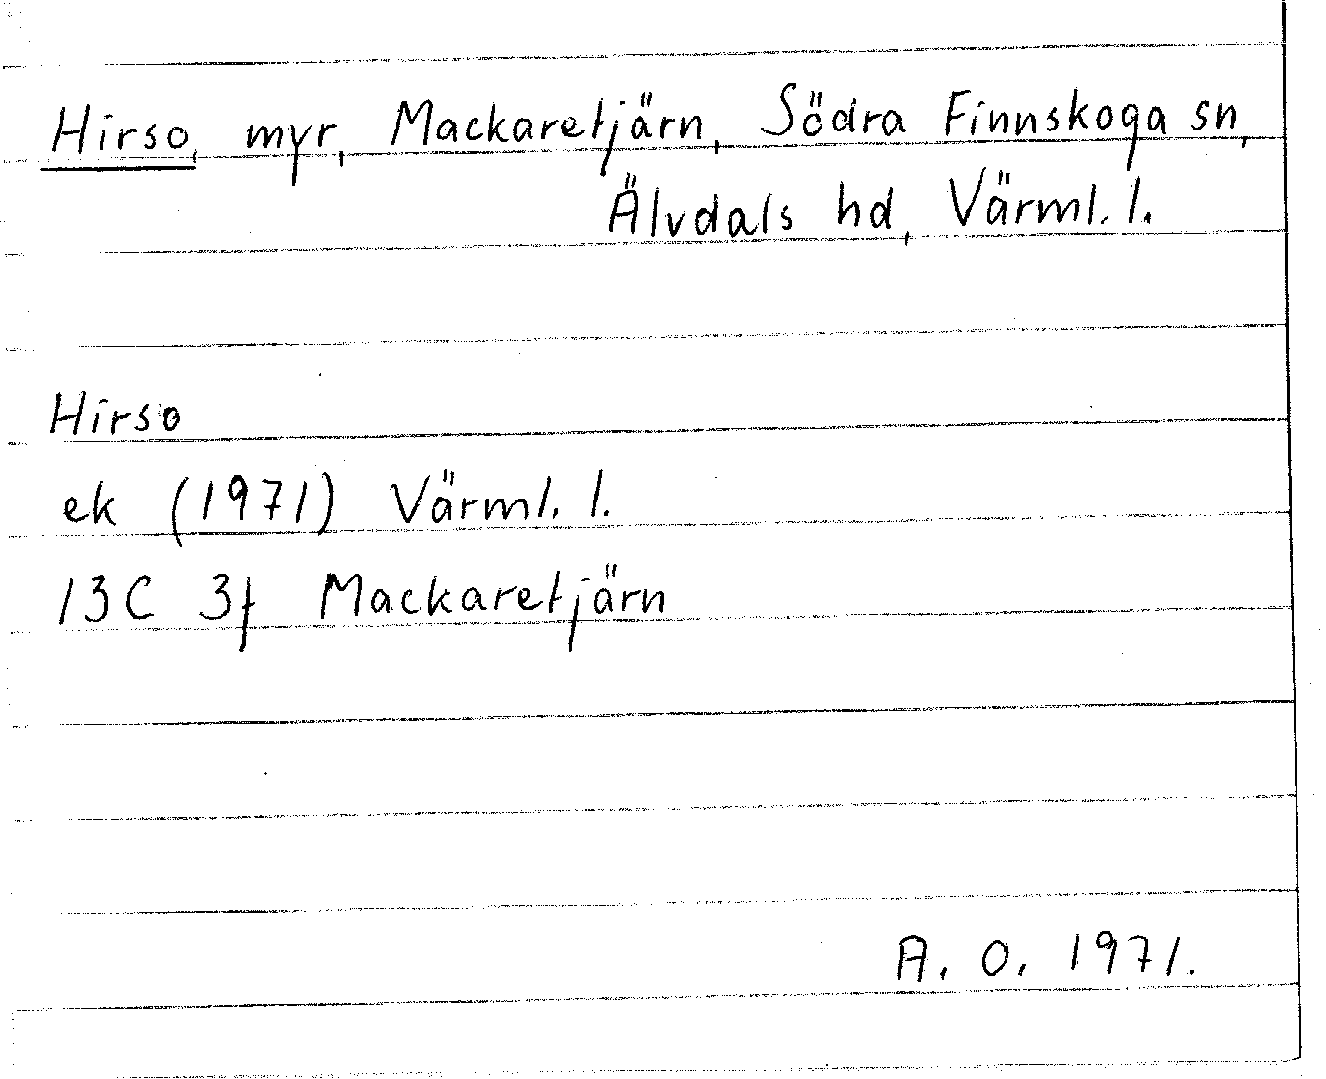 Hirso, myr, Mackaretjärn, Södra Finnskoga sn,
Älvdals hd, Värml. l.
Hirso
ek (1971) Värml. l.
13C 3f Mackaretjärn
A. O. 1971.